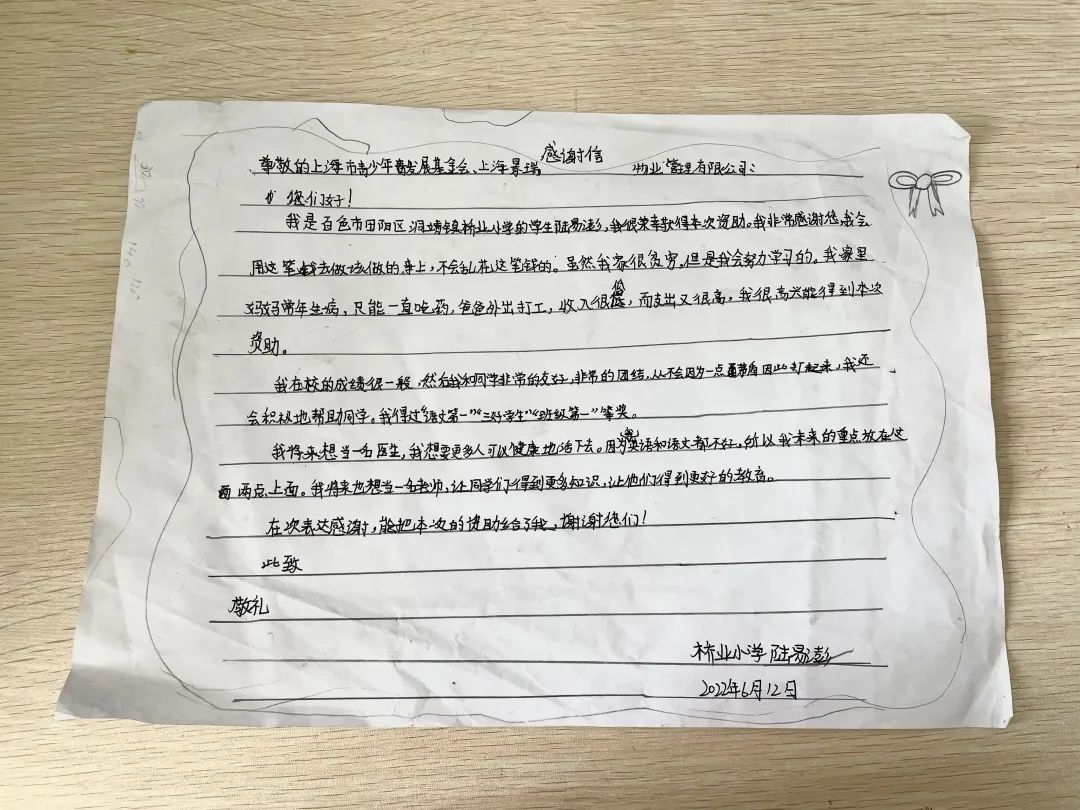 感谢信
尊敬的上海市青少年发展基金会、上海景瑞 物业管理有限公司：
您们好！
我是百色市田阳区洞靖镇桥业小学的学生陆易澎，我很荣幸获得本次资助。我非常感谢您，我会
用这笔钱去做该做的事上，不会乱花这笔钱的。虽然我家很贫穷，但是我会努力学习的。我家里
妈妈常年生病，只能一直吃药，爸爸外出打工，收入很低，而支出又很高，我很高兴能得到本次
资助。
我在校的成绩很一般，然后我和同学非常的友好，非常的团结，从不会因为一点矛盾因此打起来，我还
会积极地帮助同学。我得过“语文第一”“三好学生”“班级第一”等奖。
我将来想当一名医生，我想要更多人可以健康地活下去。因为我英语和语文都不好，所以我未来的重点放在这
两点上面。我将来也想当一名老师，让同学们得到更多知识，让他们得到更好的教育。
在次表达感谢，能把本次的资助给了我，谢谢您们！
此致
敬礼
桥业小学 陆易澎
2022年6月12日